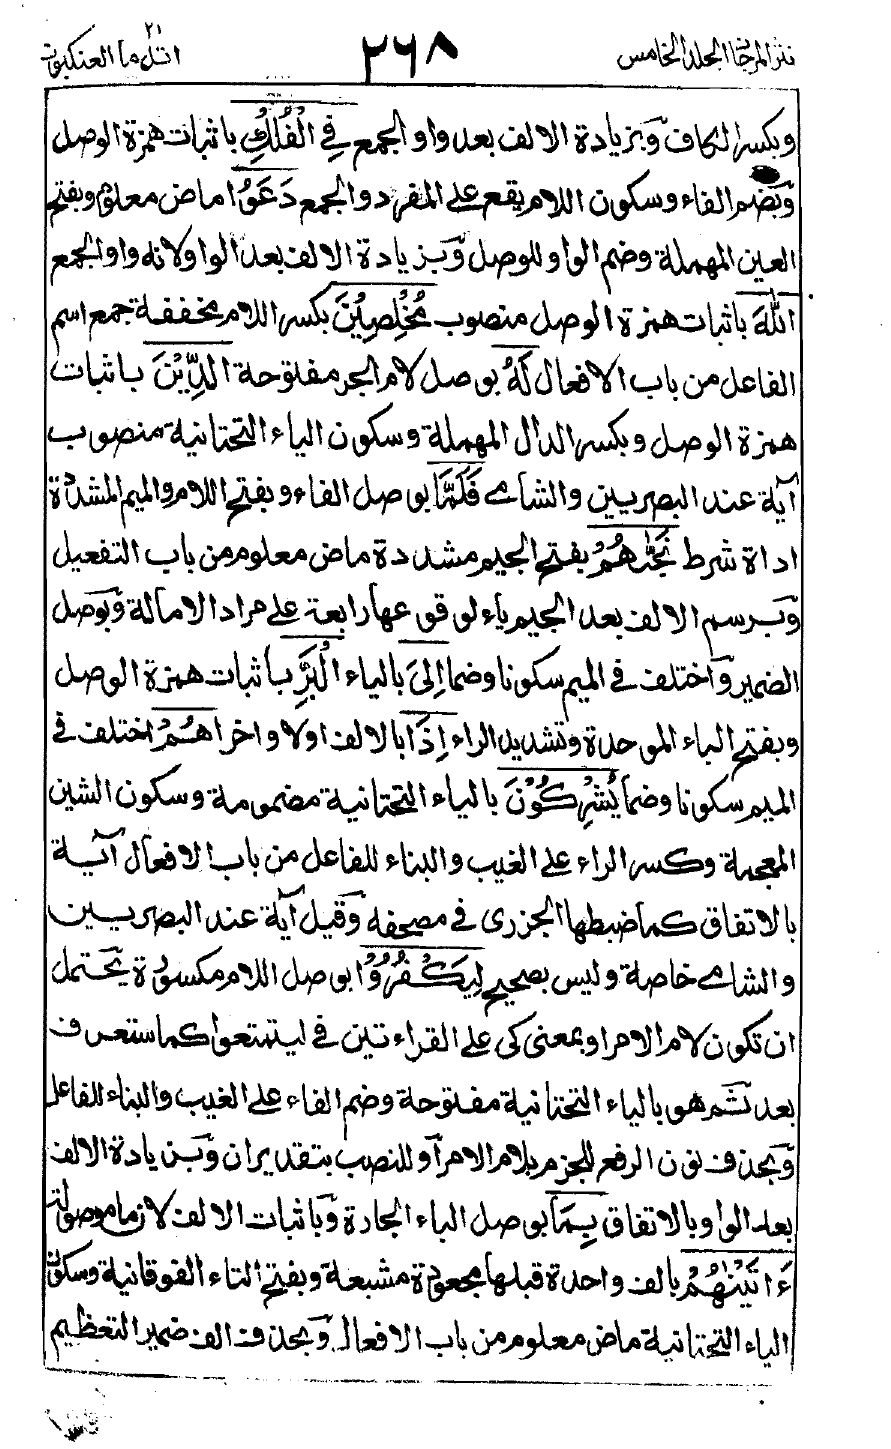 نثر المرجان المجلد الخامس
٢٦٨
٢١
اتل ما العنكبوت
وبكسر الكاف وبزيادة الالف بعد واو الجمع فِي الْفُلْكِ باثبات همزة الوصل
وبضم الفاء وسكون اللام يقع على المفرد والجمع دَعَوُا ماض معلوم وبفتح
العين المهملة وضم الواو للوصل وبزيادة الالف بعد الواو لانه واو الجمع
اللّٰهَ باثبات همزة الوصل منصوب مُخْلِصِيْنَ بكسر اللام مخففة جمع اسم
الفاعل من باب الافعال لَهُ بوصل لام الجر مفتوحة الدِّيْنَ باثبات
همزة الوصل وبكسر الدال المهملة وسكون الياء التحتانية منصوب
آية عند البصريين والشامے فَلَمَّا بوصل الفاء وبفتح اللام والميم المشددة
اداة شرط نَجّٰىهُمْ بفتح الجيم مشددة ماض معلوم من باب التفعيل
وبرسم الالف بعد الجيم ياء لوقوعها رابعة على مراد الامالة وبوصل
الضمير واختلف في الميم سكونا وضما اِلَى بالياء الْبَرِّ باثبات همزة الوصل
وبفتح الباء الموحدة وتشديد الراء اِذَا بالالف اولا واخرا هُمْ اختلف في
الميم سكونا وضما يُشْرِكُوْنَ بالياء التحتانية مضمومة وسكون الشين
المعجمة وكسر الراء على الغيب والبناء للفاعل من باب الافعال آية
بالاتفاق كما ضبطها الجزرى في مصحفه وقيل آية عند البصريين
والشامے خاصة وليس بصحيح لِيَكْفُرُوْا بوصل اللام مكسورة يحتمل
ان تكون لام الامر او بمعنى كى على القراءتين في ليتمتعوا كما ستعرف
بعد ثم هو بالياء التحتانية مفتوحة وضم الفاء على الغيب والبناء للفاعل
وبحذف نون الرفع للجزم بلام الامر او للنصب بتقدير ان وبزيادة الالف
بعد الواو بالاتفاق بِمَا بوصل الباء الجارة وباثبات الالف لان ما موصولة
ءَاتَيْنٰهُمْ بالف واحدة قبلها مجعودة مشبعة وبفتح التاء الفوقانية وسكون
الياء التحتانية ماض معلوم من باب الافعال وبحذف الف ضمير التعظيم